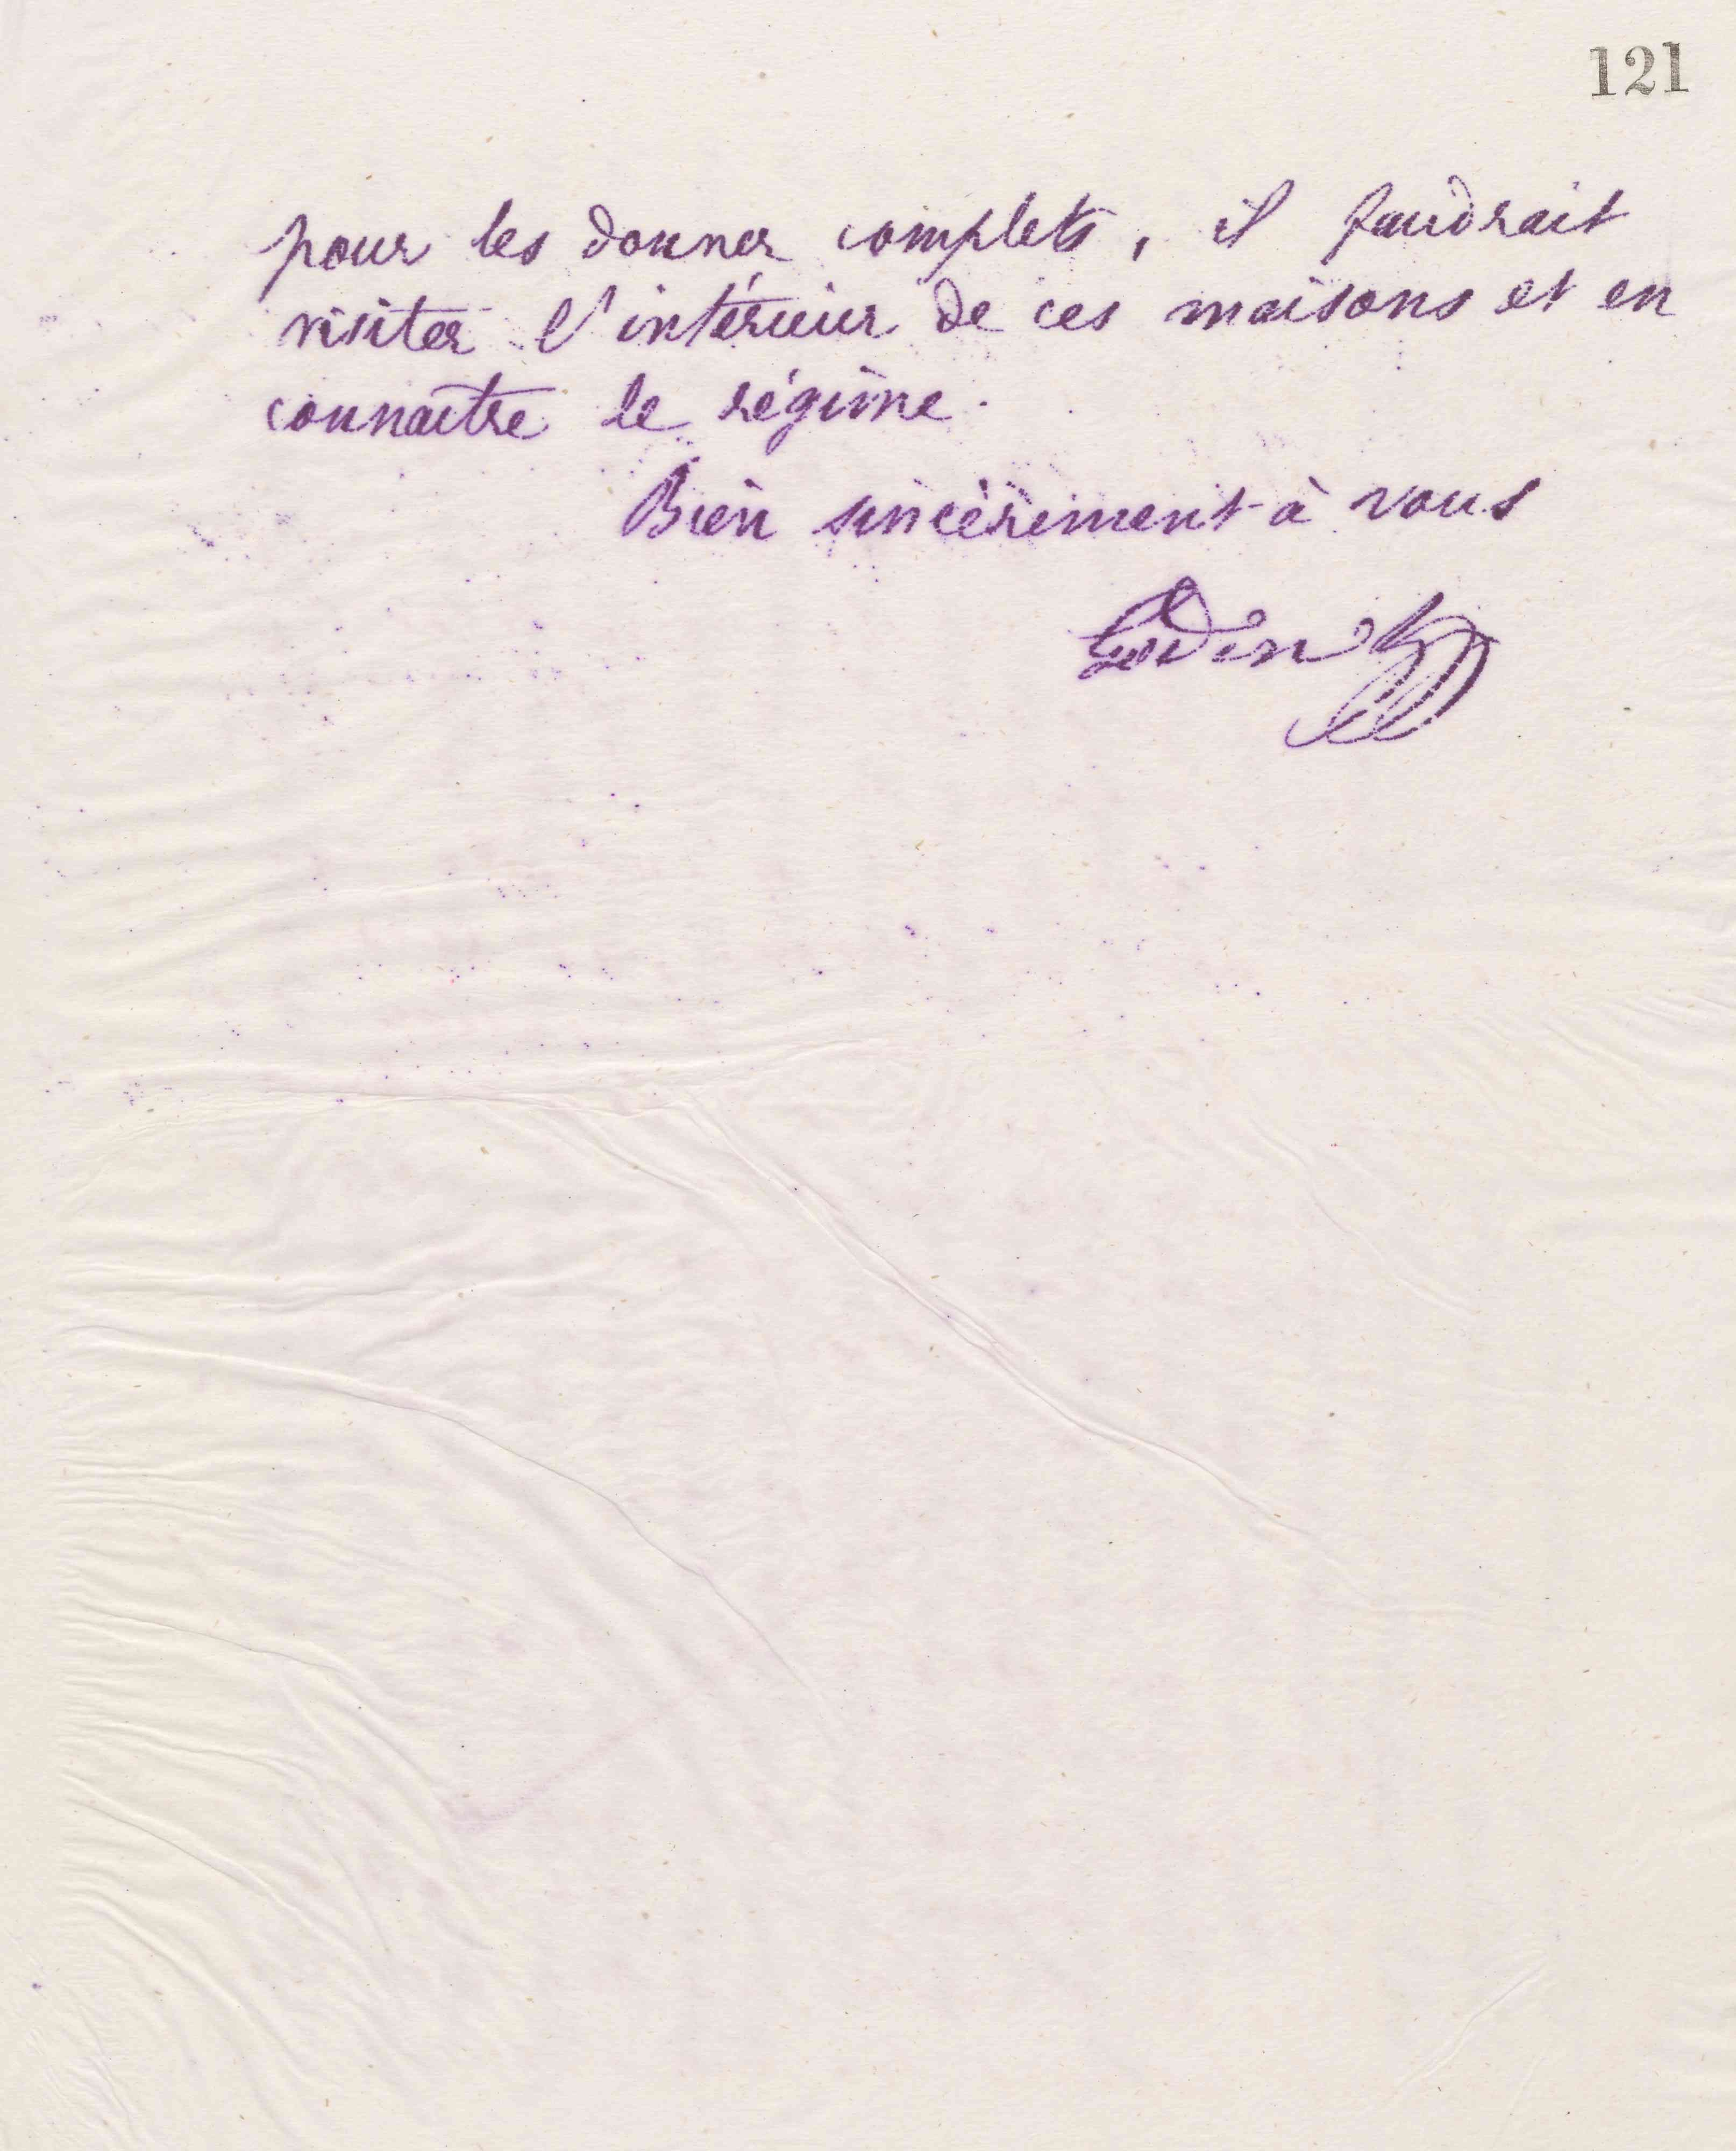 121
pour les donner complets, il faudrait
visiter l'intérieur de ces maisons et en
connaître le régime.
Bien sincèrement à vous
Godin